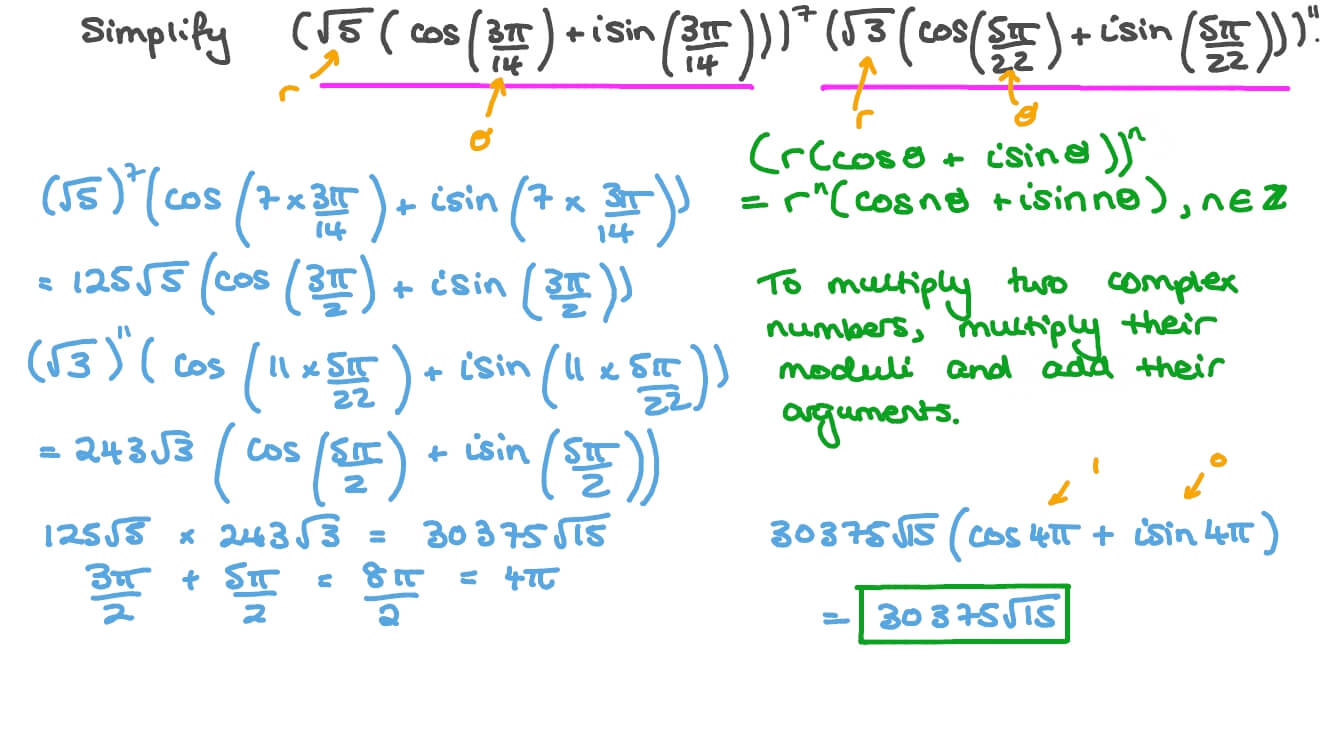 Simplify (√5 (cos(3π/14) + i sin(3π/14)))⁷ (√3 (cos(5π/22) + i sin(5π/22)))¹¹.
r θ r θ
(√5)⁷ (cos (7 × 3π/14) + i sin (7 × 3π/14))
= 125√5 (cos (3π/2) + i sin (3π/2))
(√3)¹¹ (cos (11 × 5π/22) + i sin (11 × 5π/22))
= 243√3 (cos (5π/2) + i sin (5π/2))
125√5 × 243√3 = 30375√15
3π/2 + 5π/2 = 8π/2 = 4π
(r(cos θ + i sin θ))ⁿ
= rⁿ(cos nθ + i sin nθ), n ∈ ℤ
To multiply two complex
numbers, multiply their
moduli and add their
arguments.
1 0
30375√15 (cos 4π + i sin 4π)
= 30375√15